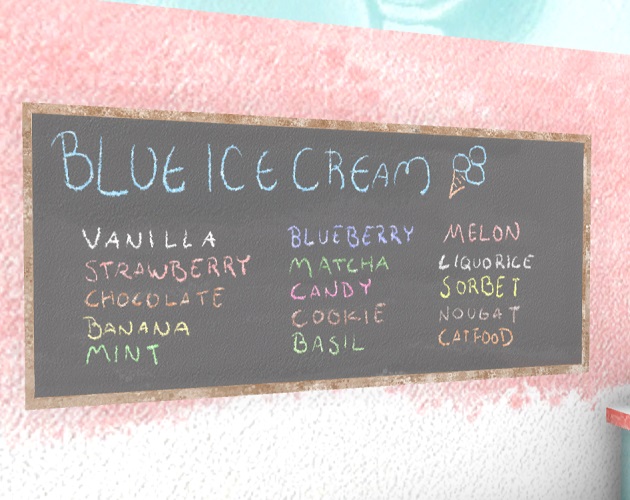 BLUE ICE CREAM
VANILLA
STRAWBERRY
CHOCOLATE
BANANA
MINT
BLUEBERRY
MATCHA
CANDY
COOKIE
BASIL
MELON
LIQUORICE
SORBET
NOUGAT
CATFOOD